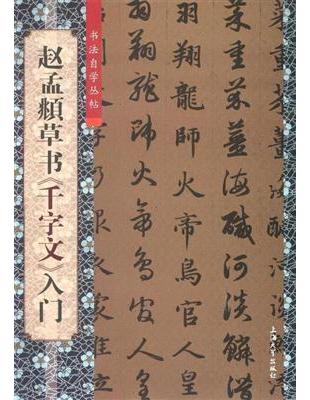 书法自学丛帖
赵孟頫草书《千字文》入门
重芥薑海鹹河淡鱗潛
羽翔龍師火帝鳥官人皇
羽翔龍師火帝鳥官人皇
上海大学出版社